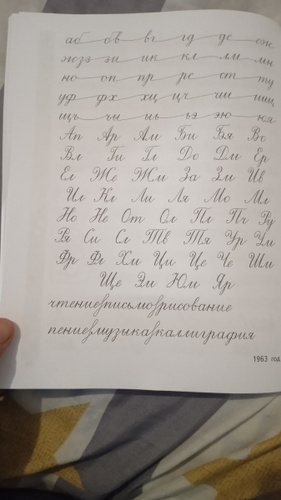 аб бв вг гд де еж
жз зэ зи ик кл ли мн
но оп пр рс ст ту
уф фх хц цч чш шщ
щъ ъы ыь ьэ эю юя
Ап Ар Ам Би Бя Во
Вл Ги Гл До Дм Ер
Ел Же Жм За Зм Ив
Ил Кл Ли Ля Мо Мл
Но Не От Ол Пл Пч Ру
Ря Си Сл Тв Тя Ур Уш
Фр Фл Хм Ци Це Че Шм
Ще Эм Юм Яр
чтение письмо рисование
пение музыка каллиграфия
1963 год